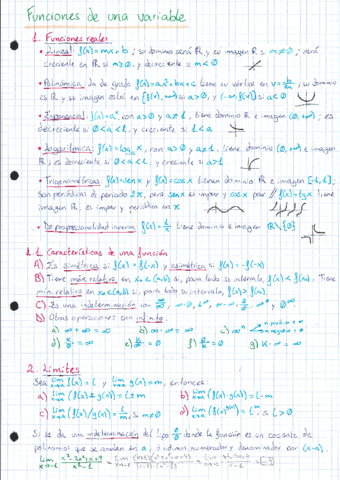 Funciones de una variable
1. Funciones reales
• Lineal: f(x)=mx+b; su dominio será ℝ y su imagen ℝ si m≠0; será
creciente en ℝ si m>0, y decreciente si m<0
• Polinómica: de grado f(x)=ax²+bx+c tiene su vértice en v=-b/2a; su dominio
es ℝ y su imagen está en [f(x),+∞) si a>0, y (-∞,f(v)] si a<0
• Exponencial: f(x)=aˣ, con a>0 y a≠1, tiene dominio ℝ e imagen (0,+∞); es
decreciente si 0<a<1, y creciente si 1<a
• Logarítmica: f(x)=logₐx, con a>0 y a≠1, tiene dominio (0,+∞) e imagen
ℝ; es decreciente si 0<a<1, y creciente si a>1
• Trigonométricas: f(x)=sen x y f(x)=cos x tienen dominio ℝ e imagen [-1,1];
son periódicas de periodo 2π, pero sen x es impar y cos x par // f(x)=tg x tiene
imagen ℝ, es impar y periódica en π
• De proporcionalidad inversa: f(x)=1/x tiene dominio e imagen ℝ\{0}
1.1 Características de una función
A) Es simétrica si f(x)=f(-x) y asimétrica si f(x)=-f(-x)
B) Tiene máx. relativo en x₀∈(a,b) si, para todo su intervalo, f(x)<f(x₀). Tiene
mín. relativo en x₀∈(a,b) si, para todo su intervalo, f(x)>f(x₀).
C) Es una indeterminación
D) Otras operaciones con infinito:
a) ∞+∞=∞ b) ∞·∞=∞ c) ∞ⁿ n positivo = ∞
n negativo = 0
d) e) f) g) K·∞=∞
2. Límites
Sea lim f(x)=l y lim g(x)=m, entonces:
a) lim (f(x)±g(x))=l±m b) lim (f(x)·g(x))=l·m
c) lim (f(x)/g(x))=l/m, si m≠0 d) lim (f(x)^g(x))=l^m si l>0
Si se da una indeterminación del tipo 0/0 donde la función es un cociente de
polinomios que se anulan en a, dividimos numerador y denominador por (x-a).